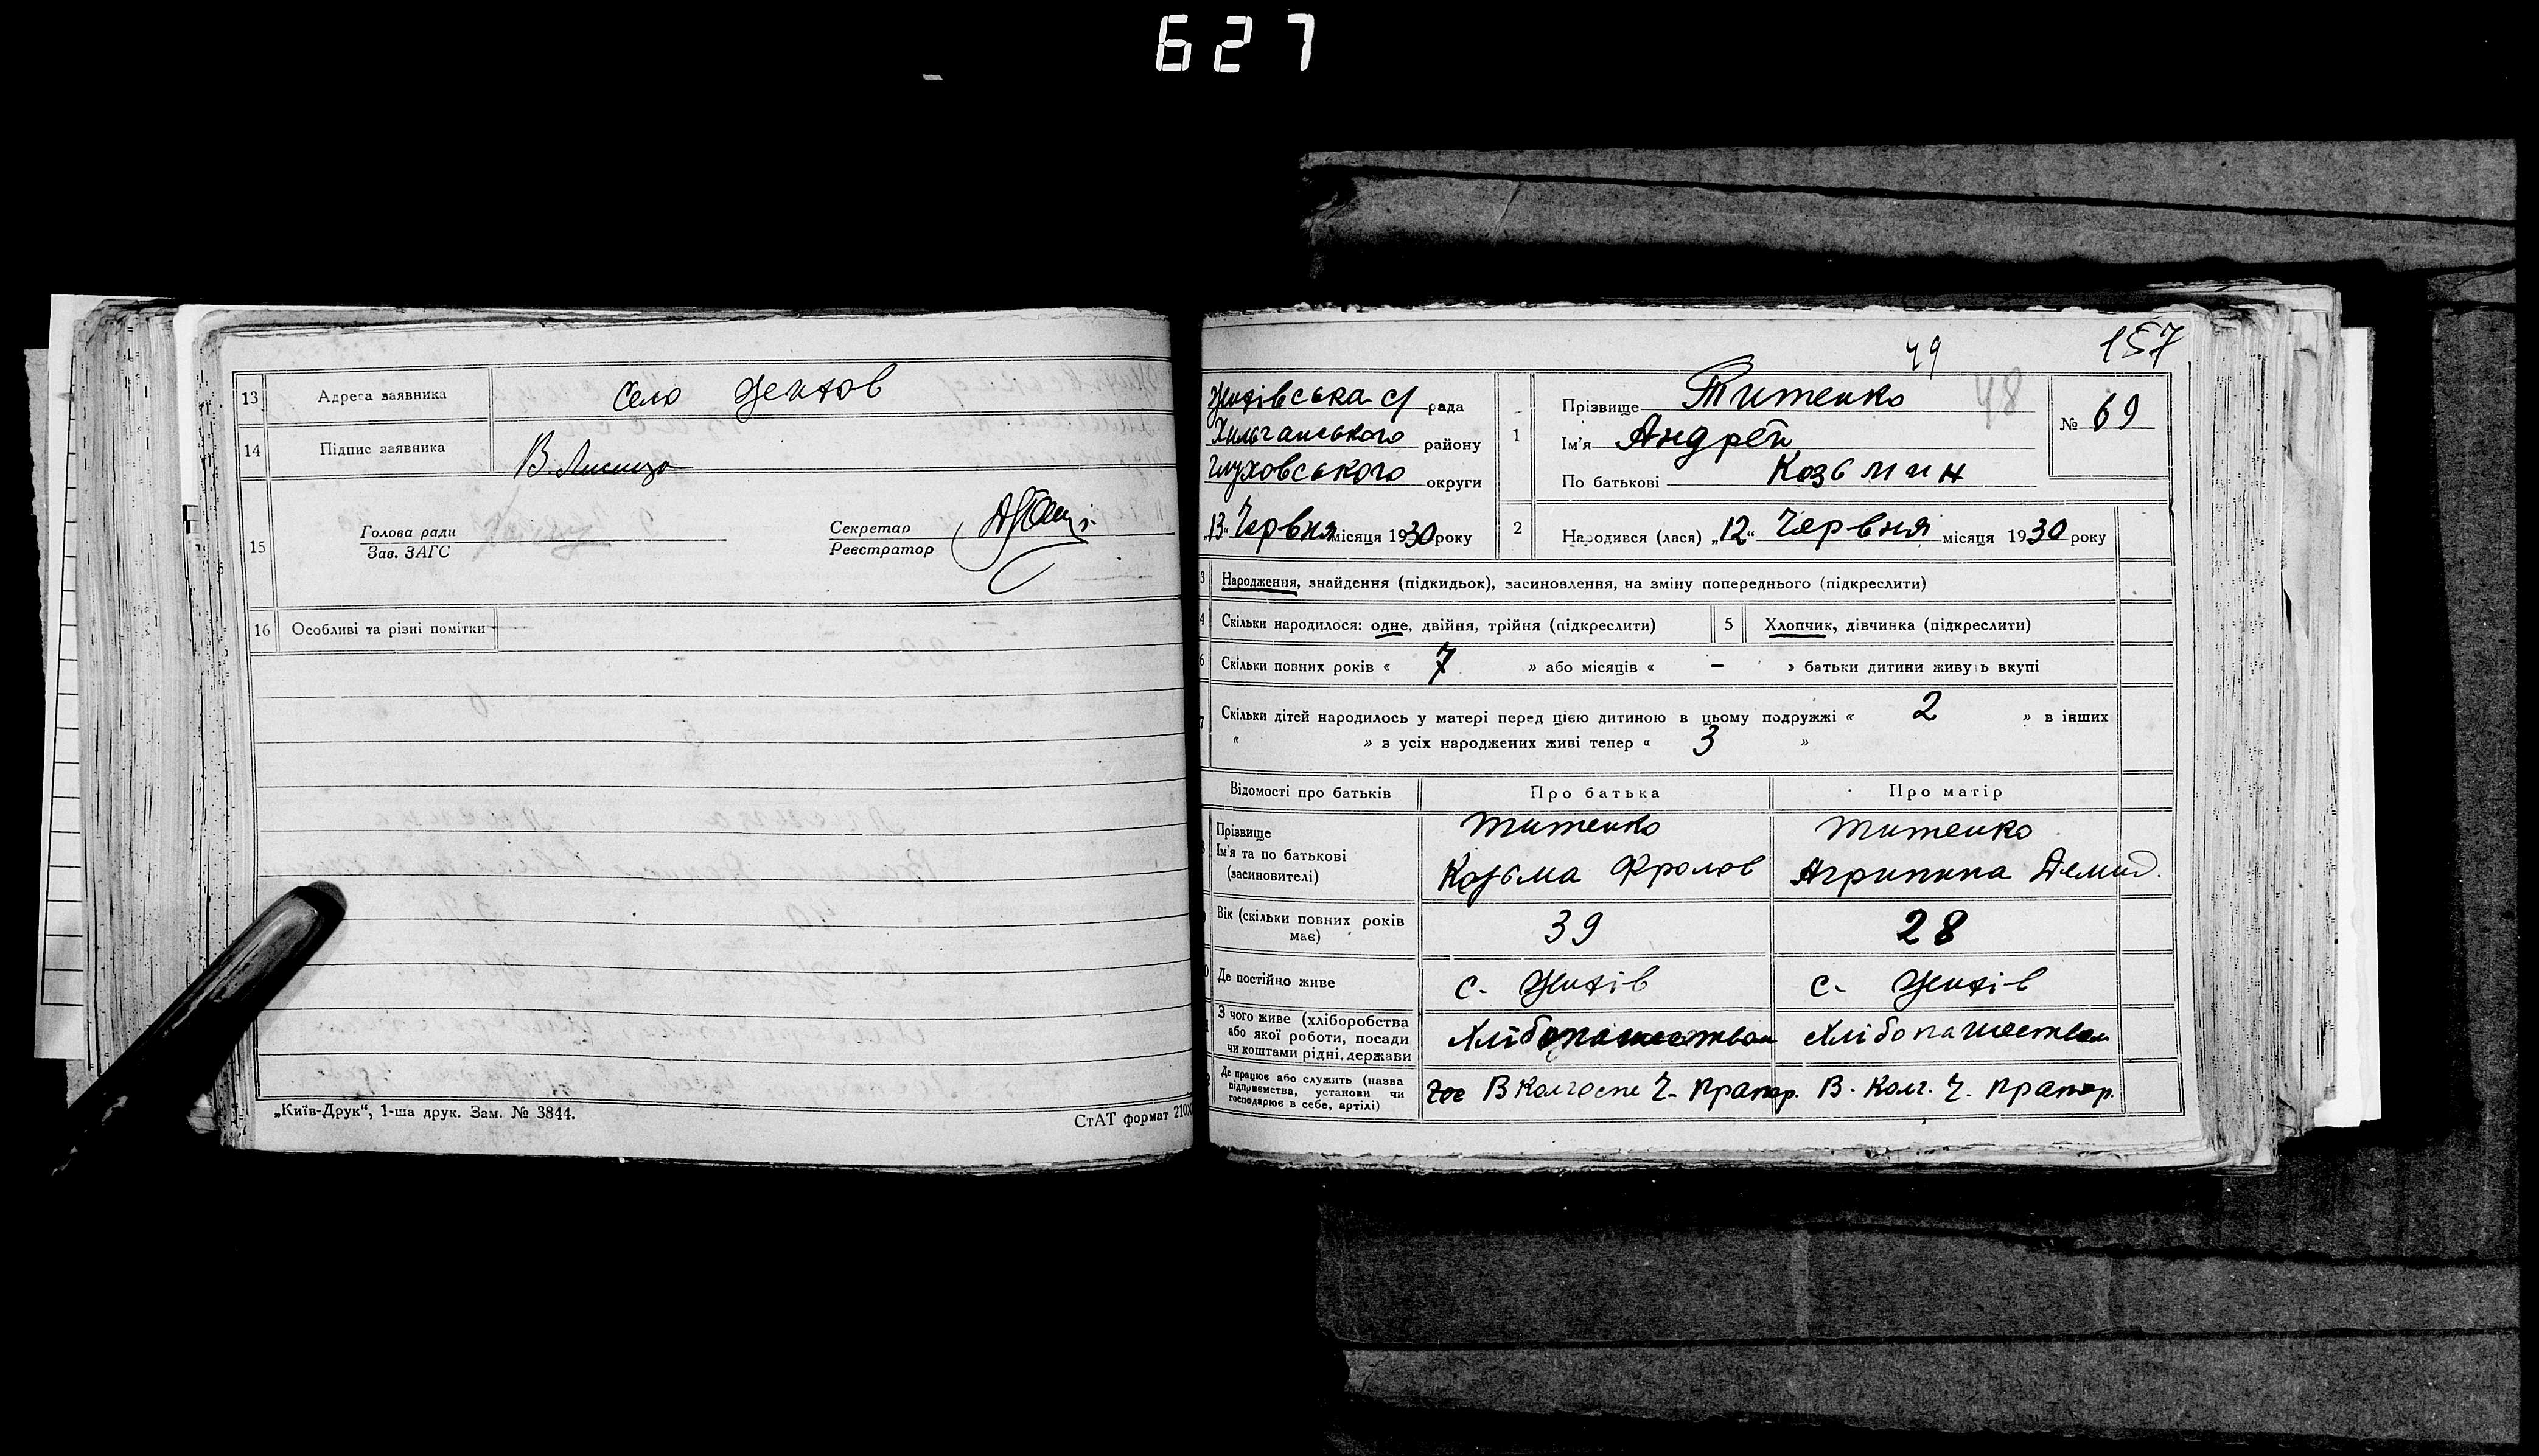 627
13 Адреса заявника Село
14 Підпис заявника
В. Лисиця
15 Голова ради
Зав. ЗАГС
Секретар
Реєстратор
16 Особливі та різні помітки
„Київ-Друк“, 1-ша друк. Зам. № 3844.
СтАТ формат 210
157
49
48
рада
району
Глуховського округи
„13“ Червня місяця 1930 року
1 Прізвище Титенко
Ім'я Андрей
По батькові Козьмин
№ 69
2 Народився (лася) „12“ Червня місяця 1930 року
3 Народження, знайдення (підкидьок), засиновлення, на зміну попереднього (підкреслити)
4 Скільки народилося: одне, двійня, трійня (підкреслити) 5 Хлопчик, дівчинка (підкреслити)
6 Скільки повних років « 7 » або місяців « – » батьки дитини живуть вкупі
7 Скільки дітей народилось у матері перед цією дитиною в цьому подружжі « 2 » в інших
« » з усіх народжених живі тепер « 3 »
Відомості про батьків Про батька Про матір
Прізвище Титенко Титенко
Ім'я та по батькові
(засиновителі)
Козьма Фролов Агрипина Демид.
Вік (скільки повних років
має)
39 28
Де постійно живе с. с.
З чого живе (хліборобства
або якої роботи, посади
чи коштами рідні, держави
Хлібопашеством Хлібопашеством
Де працює або служить (назва
підприємства, установи чи
господарює в себе, артілі)
В Колгоспе Ч. Прапор. В. Колг. Ч. Прапор.